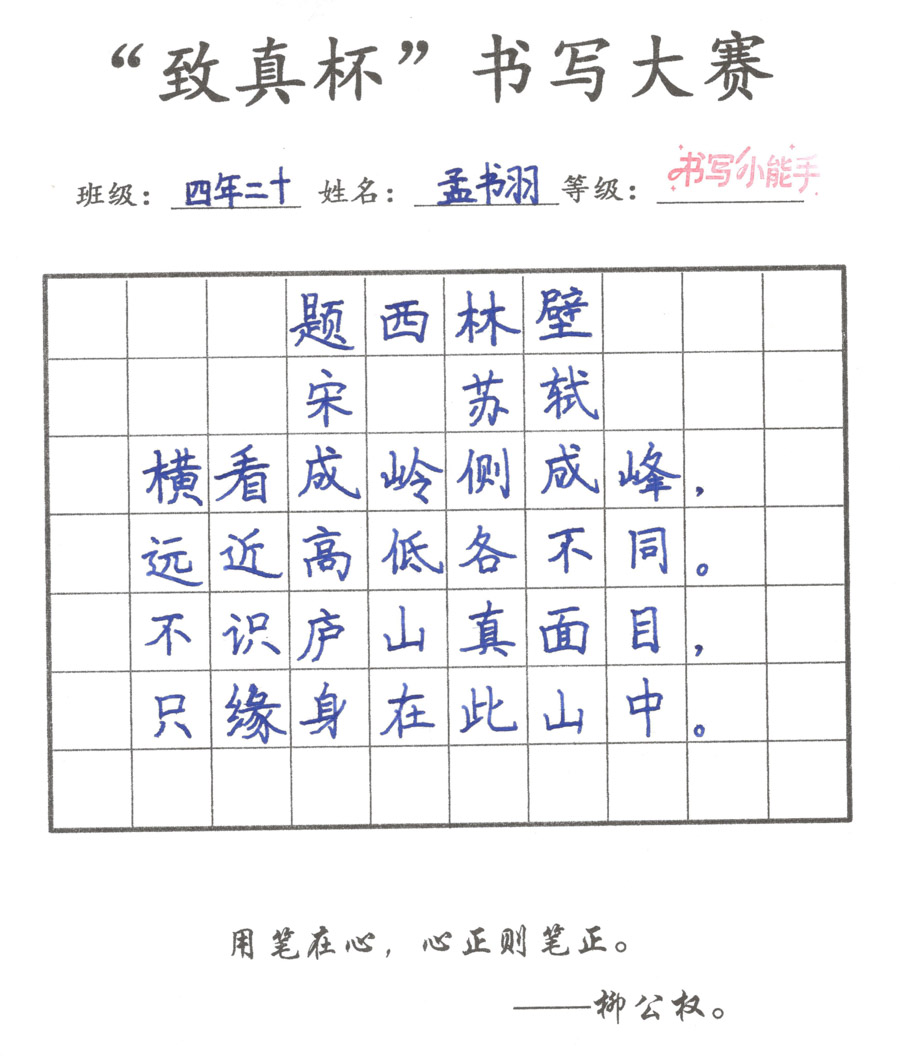 “致真杯”书写大赛
班级：四年二十 姓名：孟书羽 等级：书写小能手
题西林壁
宋 苏轼
横看成岭侧成峰，
远近高低各不同。
不识庐山真面目，
只缘身在此山中。
用笔在心，心正则笔正。
——柳公权。